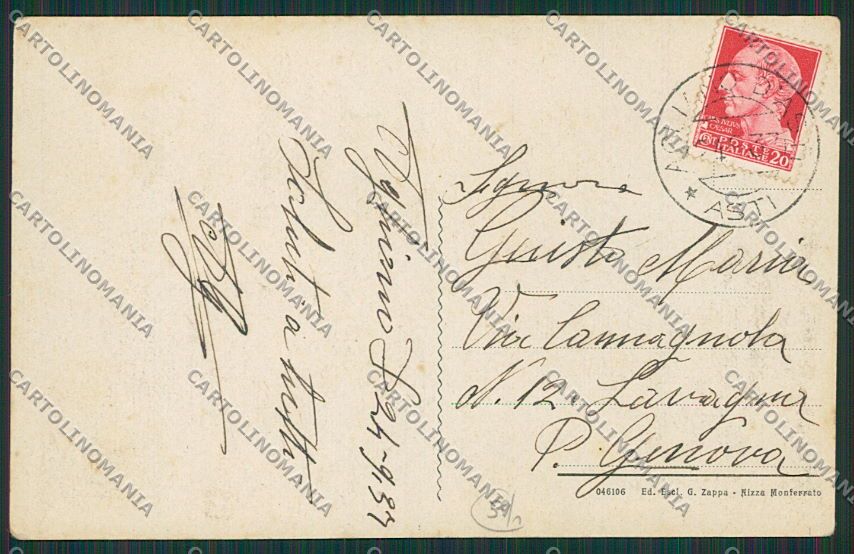 Vignano L. 24-9.37
Saluti a tutti
Signora
Giusto Maria
Via Carmagnola
N. 12. Lavagna
P. Genova
IVLIVS
CAESAR
CENT POSTE 20
ITALIANE
ASTI
046106 Ed. Escl. G. Zappa - Nizza Monferrato
CARTOLINOMANIA